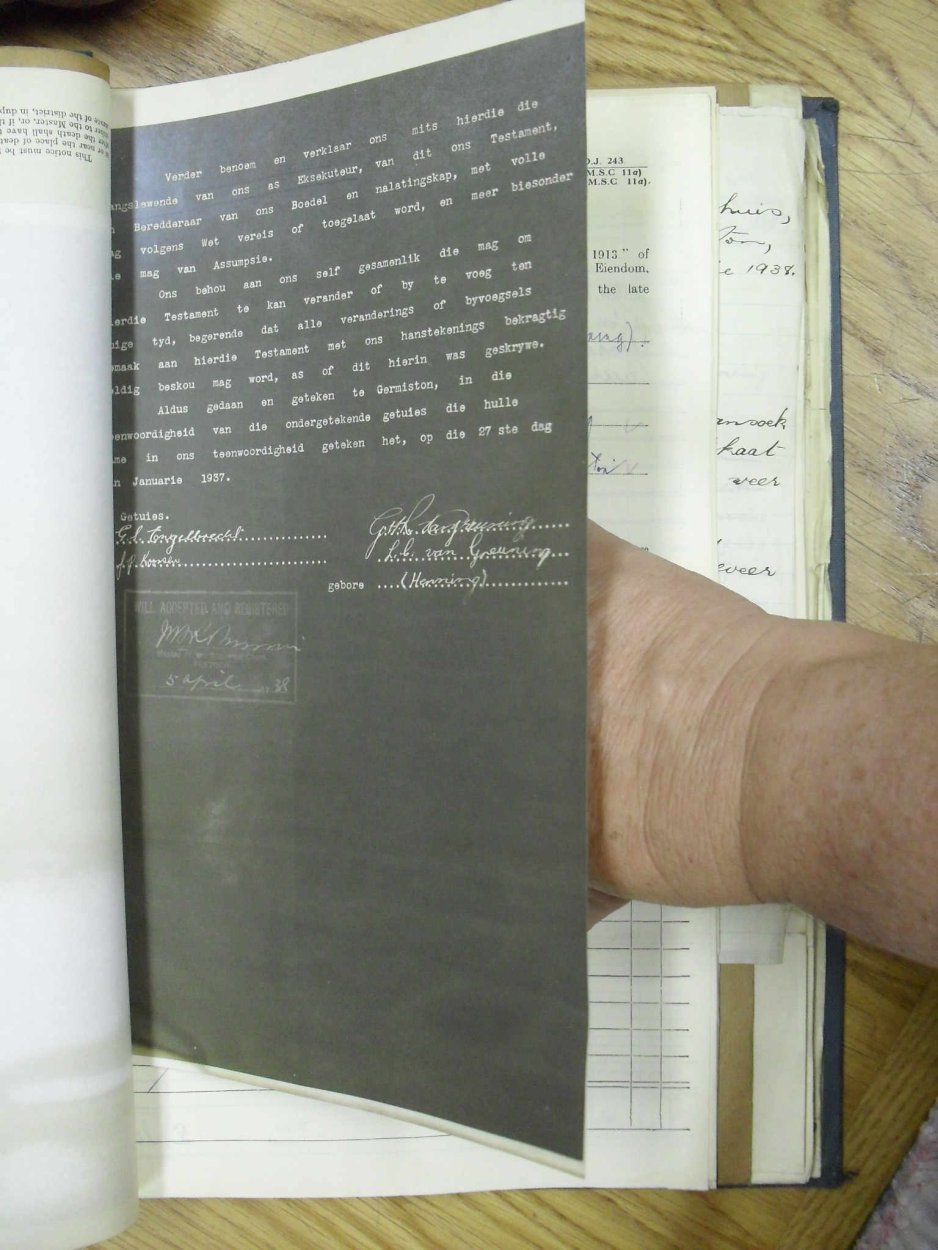 This notice must be
or near the place of death
the death shall have
Master, or, if
of the district, in
Verder benoem en verklaar ons mits hierdie die
angslewende van ons as Eksekuteur, van dit ons Testament,
Beredderaar van ons Boedel en nalatingskap, met volle
ag volgens Wet vereis of toegelaat word, en meer biesonder
ie mag van Assumpsie.
Ons behou aan ons self gesamenlik die mag om
ierdie Testament te kan verander of by te voeg ten
nige tyd, begerende dat alle veranderings of byvoegsels
emaak aan hierdie Testament met ons hanstekenings bekragtig
ldig beskou mag word, as of dit hierin was geskrywe.
Aldus gedaan en geteken te Germiston, in die
enwoordigheid van die ondergetekende getuies die hulle
me in ons teenwoordigheid geteken het, op die 27 ste dag
n Januarie 1937.
Getuies.
Engelbrecht
van Greuning
L.C. van Greuning
gebore (Henning)
WILL ACCEPTED AND REGISTERED
5 April 38
D.J. 243
M.S.C 11a)
M.S.C. 11a).
1913 " of
Eiendom,
the late
huis,
1938.
kaat
veer